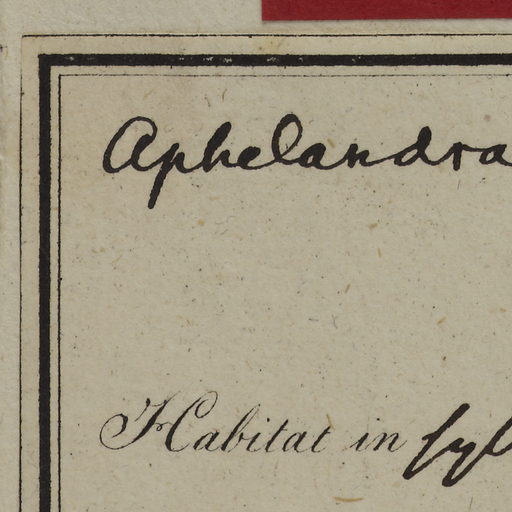 Aphelandra
Habitat in syl